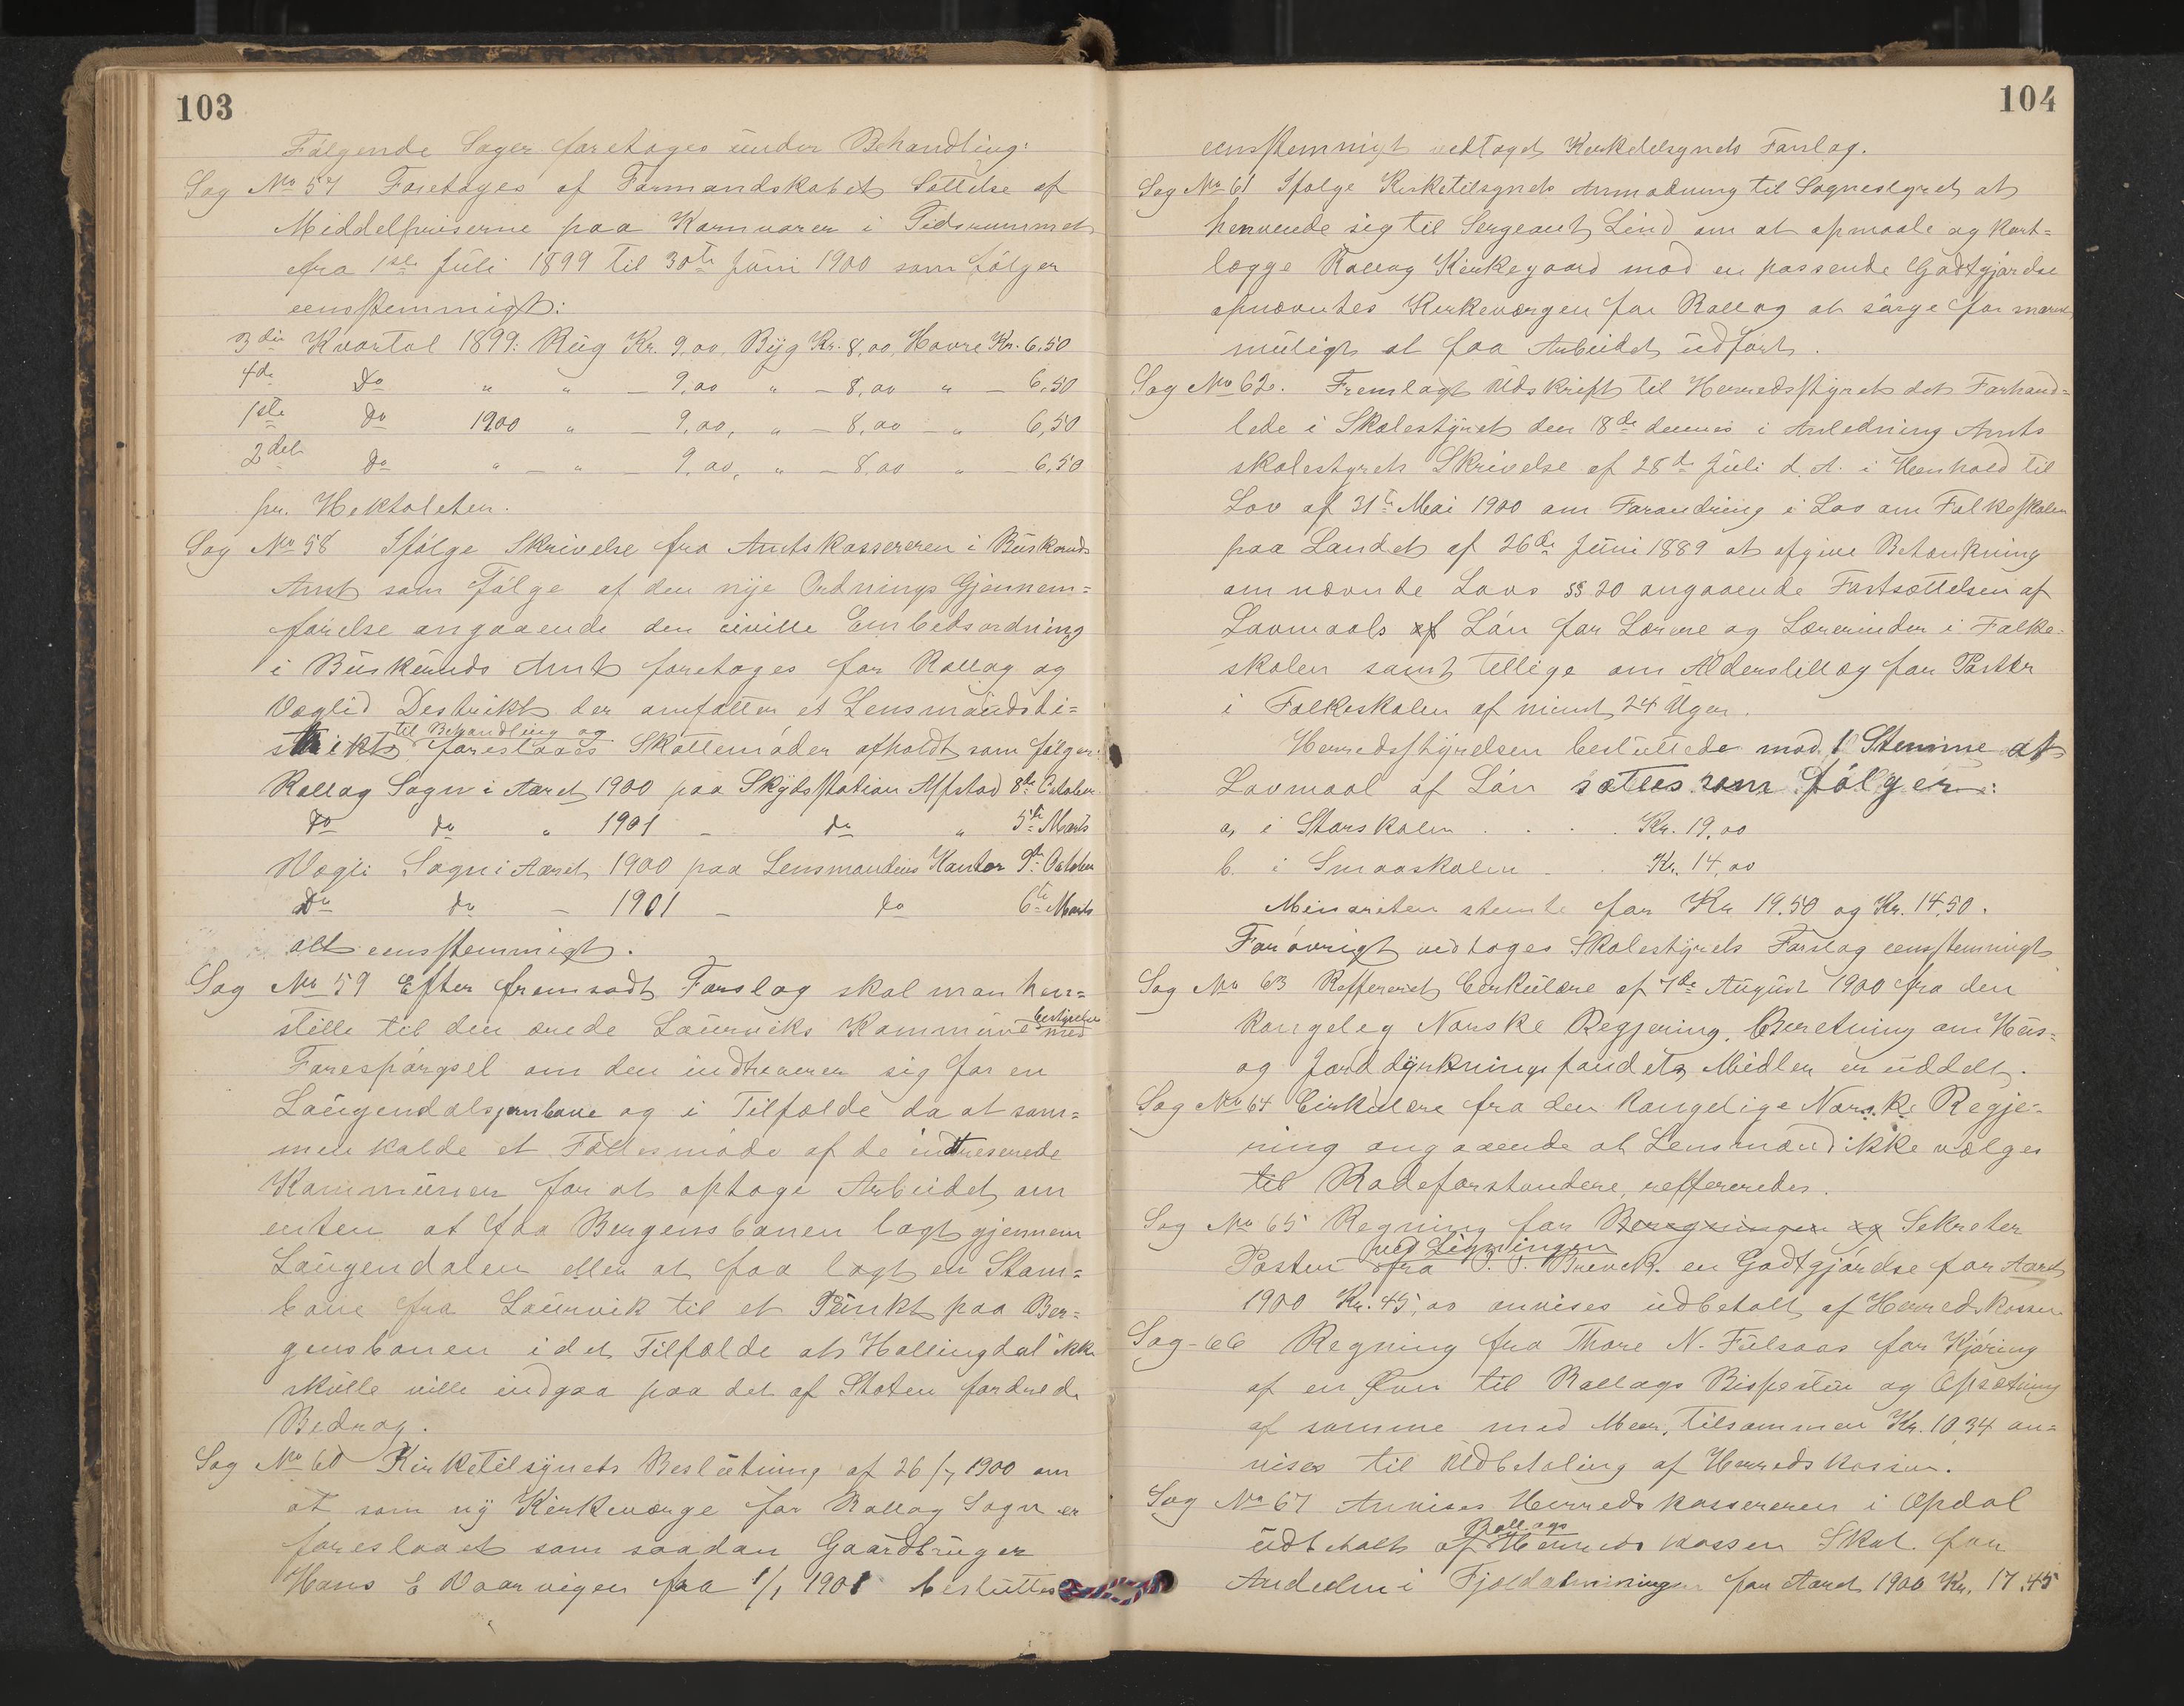 103
Følgende Sager foretoges under Behandling:
Sag No 57 Foretoges af Formandskabet Sættelse af
Middelpriserne paa Kornvarer i Tidsrummet
fra 1ste Juli 1899 til 30te Juni 1900 som følger
eenstemmigt:
3die Kvartal 1899: Rug Kr. 9,00, Byg Kr. 8,00, Havre Kr. 6,50
4de Do " " — 9,00 " — 8,00 " — 6,50
1ste Do 1900 " — 9,00, " — 8,00 — " 6,50
2det Do " — " — 9,00, " — 8,00 " — 6,50
pr. Hektoleter.
Sag No 58 Ifølge Skrivelse fra Amtskassereren i Buskeruds
Amt som Følge af den nye Ordnings Gjennem=
førelse angaaende den civille Embedsordning
i Buskeruds Amt foretoges for Rollag og
Væglid Destrikt der omfatter et Lensmandsdi=
strikt til Behandling og foreslaaes Skattemøder afholdt som følger:
Rollag Sogn i Aaret 1900 paa Skydsstation Alfstad 8de October
Do do " 1901 — do " 5te Marts
Vægli Sogn i Aaret 1900 paa Lensmandens Kontor 9de October
Do do — 1901 — do 6te Marts
alt eenstemmigt.
Sag No 59 Efter fremsadt Forslag skal man hen=
stille til den ærede Laurviks Kommunebestyrelse med
Forespørgsel om den indtreserer sig for en
Laugendalsjernbane og i Tilfælde da at sam=
menkalde et Fællesmøde af de indtreserede
Kommuner for at optage Arbeidet om
enten at faa Bergensbanen lagt gjennem
Laugendalen eller at faa lagt en Stam=
bane fra Laurvik til et Punkt paa Ber=
gensbanen i det Tilfælde at Hallingdal ikke
skulle ville indgaa paa det af Staten fordrede
Bedrag.
Sag No 60 Kirketilsynets Beslutning af 26/7 1900 om
at som ny Kirkeværge for Rollag Sogn er
foreslaaet som saadan Gaardbruger
Hans E Vaarvigen fra 1/1 1901 besluttes
104
eenstemmigt vedtaget Kirketilsynets Forslag.
Sag No 61 Ifølge Kirketilsynets Anmodning til Sognestyret at
henvende sig til Sergeant Lind om at opmaale og kart=
lægge Rollag Kirkegaard mod en passende Godtgjørelse
opnævntes Kirkeværgen for Rollag at sørge for snarest
muligt at faa Arbeidet udført.
Sag No 62. Fremlagt Udskrift til Herredsstyret det Forhand=
lede i Skolestyret den 18de dennes i Anledning Amts
skolestyrets Skrivelse af 28de Juli d. A. i Henhold til
Lov af 31te Mai 1900 om Forandring i Lov om Folkeskolen
paa Landet af 26de Juni 1889 at afgive Betænkning
om nævnte Lovs §§ 20 angaaende Fastsættelsen af
Lavmaals af Løn for Lærere og Lærerinder i Folke=
skolen samt tillige om Alderstillæg for Poster
i Folkeskolen af mindst 24 Uger.
Herredsstyrelsen besluttede mod 1 Stemme at
Lavmaal af Løn sættes som følger:
a, i Storskolen . . . . Kr. 19,00
b. i Smaaskolen . . Kr. 14,00
Minoriteten stemte for Kr 19.50 og Kr. 14,50.
Forøvrigt vedtoges Skolestyrets Forslag eenstemmigt
Sag No 63 Reffereret Cirkulære af 7de August 1900 fra den
kongeleg Norske Regjering. Beretning om Hus=
og Jorddyrkningsfondets Midler er uddelt.
Sag No 64 Cirkulære fra den kongelige Norske Regje=
ring angaaende at Lensmænd ikke vælges
til Rodeforstandere, reffereredes.
Sag No 65 Regning for Beregningen og Sekretær
Posten ved Ligningen fra en Godtgjørelse for Aaret
1900 Kr. 45,00 anvises udbetalt af Herredskassen
Sag - 66 Regning fra Thore N. Fulsaas for Kjøring
af en Ovn til Rollags Bispestue og Opsætning
af samme med Meer, tilsammen Kr. 10,34 an=
vises til Udbetaling af Herredskassen.
Sag No 67 Anvises Herredskassereren i Opdal
udbetalt af Rollags Herreds kassen Skat for
Andelen i Fjeldstrækningen for Aaret 1900 Kr. 17,45